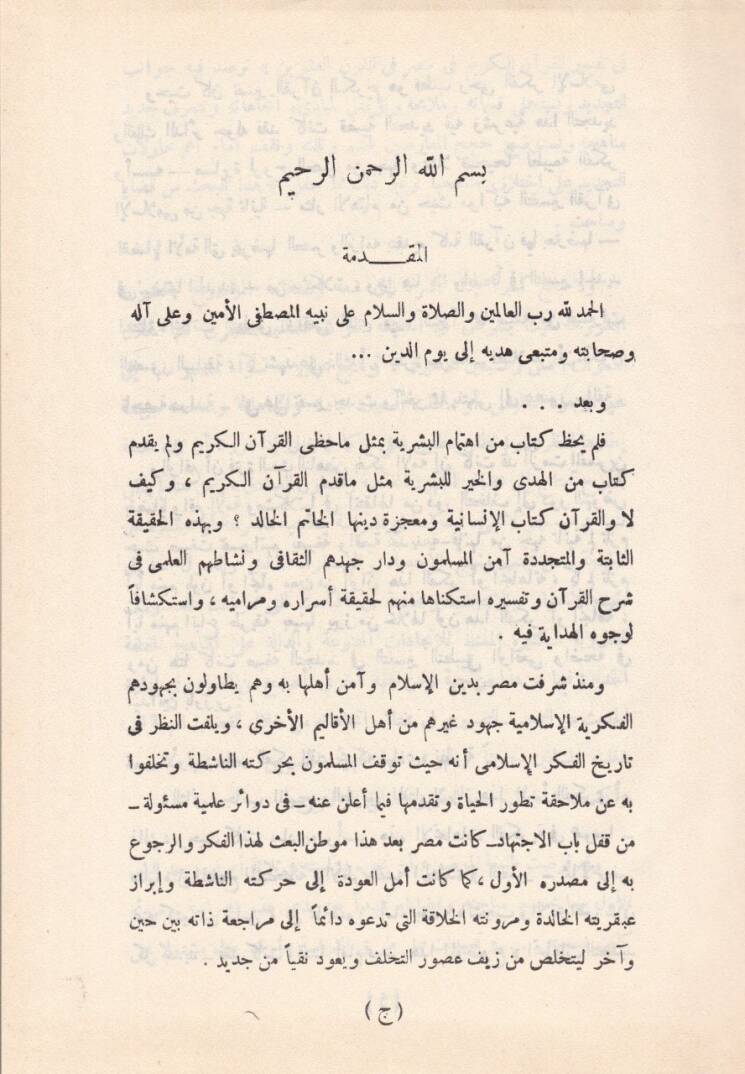 بسم الله الرحمن الرحيم
المقـــدمة
الحمد لله رب العالمين والصلاة والسلام على نبيه المصطفى الأمين وعلى آله
وصحابته ومتبعى هديه إلى يوم الدين ...
وبعد . . .
فلم يحظ كتاب من اهتمام البشرية بمثل ماحظى القرآن الكريم ولم يقدم
كتاب من الهدى والخير للبشرية مثل ماقدم القرآن الكريم ، وكيف
لا والقرآن كتاب الإنسانية ومعجزة دينها الخاتم الخالد ؟ وبهذه الحقيقة
الثابتة والمتجددة آمن المسلمون ودار جهدهم الثقافى ونشاطهم العلمى فى
شرح القرآن وتفسيره استكناها منهم لحقيقة أسراره ومراميه ، واستكشافاً
لوجوه الهداية فيه .
ومنذ شرفت مصر بدين الإسلام وآمن أهلها به وهم يطاولون بجهودهم
الفكرية الإسلامية جهود غيرهم من أهل الأقاليم الأخرى ، ويلفت النظر فى
تاريخ الفكر الإسلامى أنه حيث توقف المسلمون بحركته الناشطة وتخلفوا
به عن ملاحقة تطور الحياة وتقدمها فيما أعلن عنه ـ فى دوائر علمية مسئولة ـ
من قفل باب الاجتهاد ـ كانت مصر بعد هذا موطن البعث لهذا الفكر والرجوع
به إلى مصدره الأول ، كما كانت أمل العودة إلى حركته الناشطة وإبراز
عبقريته الخالدة ومرونته الخلاقة التى تدعوه دائماً إلى مراجعة ذاته بين حين
وآخر ليتخلص من زيف عصور التخلف ويعود نقياً من جديد .
( ج )